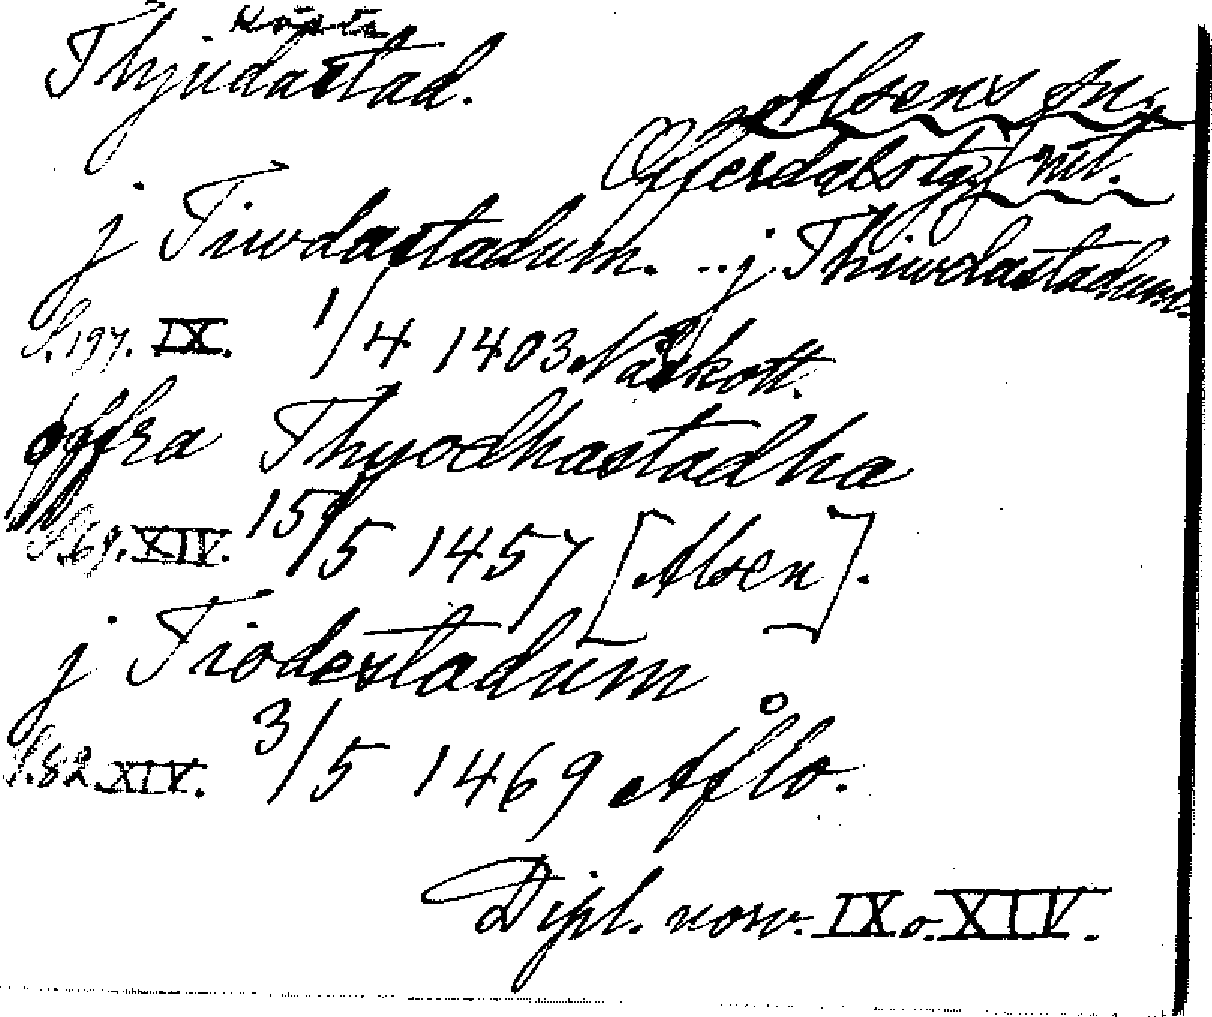 Köpte
Thjudastad.
Alsens sn.
Offerdals tg. mt.
j Tiwdastadum. .. j Thiwdastadum.
S. 197. IX. 1/4 1403 Näskott.
offra Thyodhastadha
S. 69. XIV. 15/5 1457 [Alsen].
j Tiodestadum
S. 82. XIV. 3/5 1469 Aflo.
Dipl. norv. IX o. XIV.